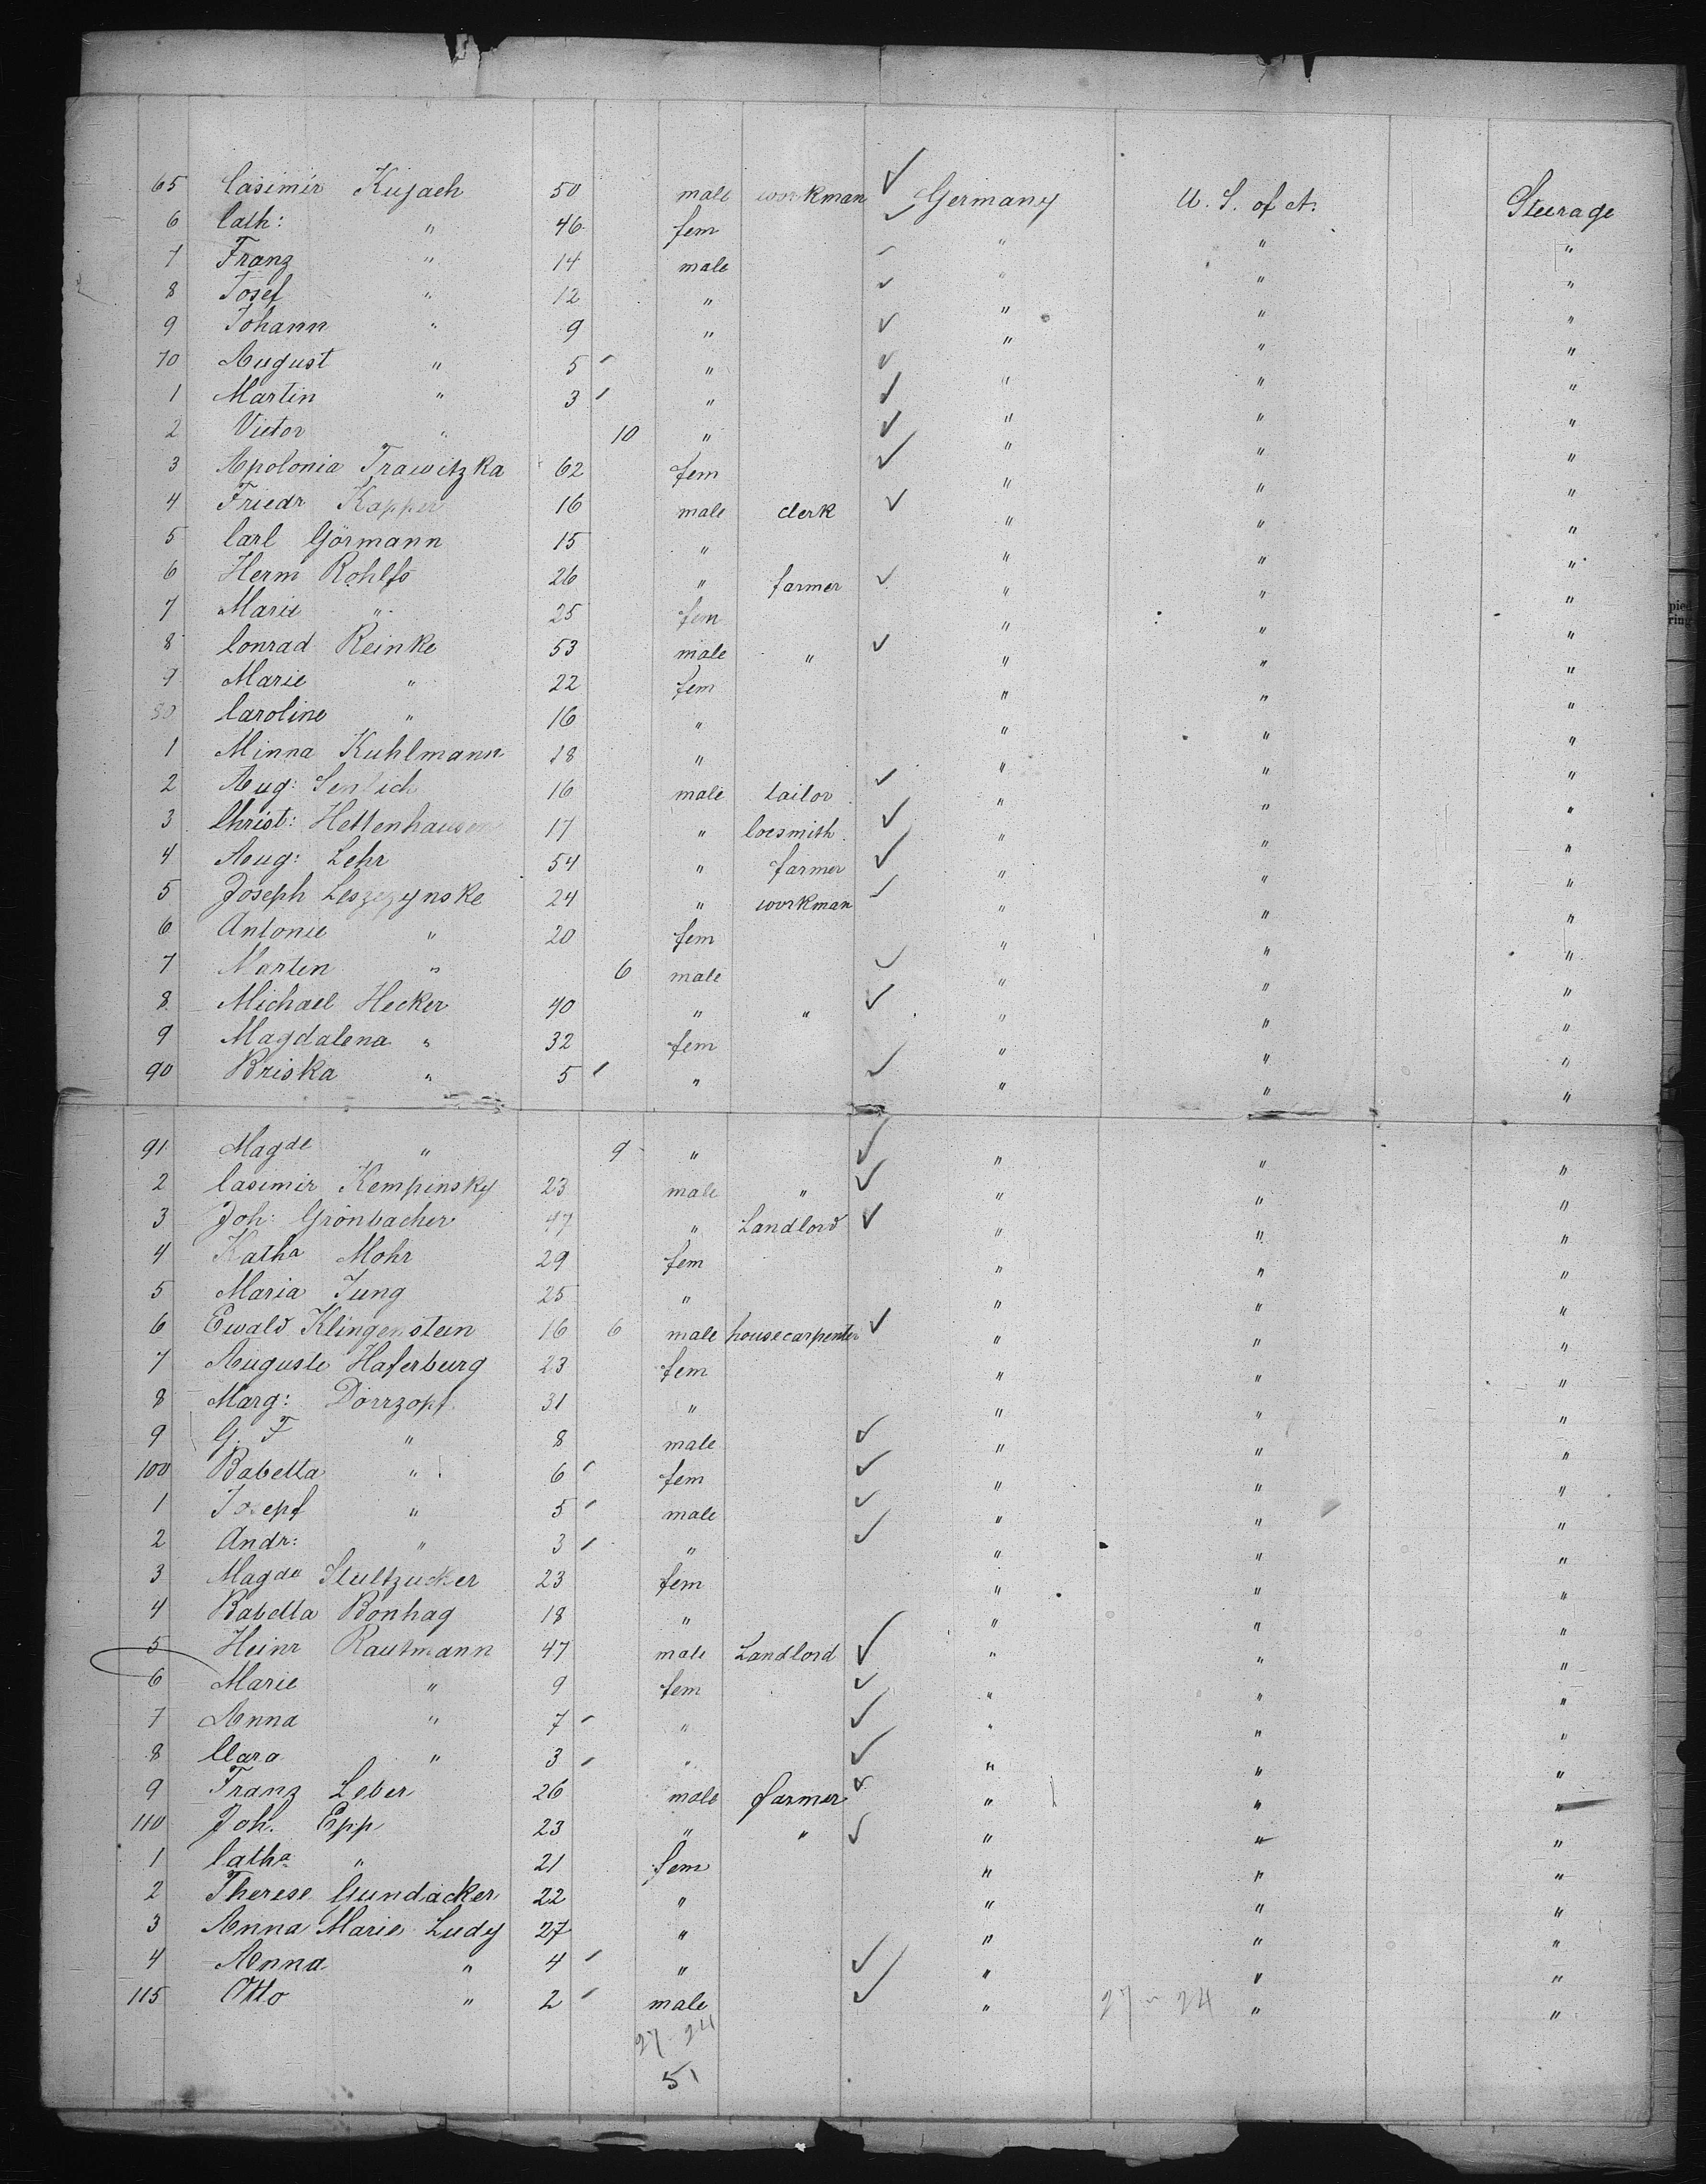 65 Casimir Kujach 50 male workman ✓ Germany U. S. of A. Steerage
6 Cath: " 46 fem ✓ " " "
7 Franz " 14 male ✓ " " "
8 Josef " 12 " ✓ " " "
9 Johann " 9 " ✓ " " "
70 August " 5 " ✓ " " "
1 Martin " 3 " ✓ " " "
2 Victor " 10 " ✓ " " "
3 Apolonia Trawitzka 62 fem ✓ " " "
4 Friedr Kapper 16 male clerk ✓ " " "
5 Carl Görmann 15 " " " "
6 Herm Rohlfs 26 " farmer ✓ " " "
7 Marie " 25 fem " " "
8 Conrad Reinke 53 male " ✓ " " "
9 Marie " 22 fem " " "
80 Caroline " 16 " " " "
1 Minna Kuhlmann 18 " " " "
2 Aug: 16 male tailor ✓ " " "
3 Christ: Hettenhausen 17 " locsmith ✓ " " "
4 Aug: Lehr 54 " farmer ✓ " " "
5 Joseph Leszczynske 24 " workman ✓ " " "
6 Antonie " 20 fem " " "
7 Marten " 6 male ✓ " " "
8 Michael Hecker 40 " " ✓ " " "
9 Magdalena " 32 fem " " "
90 Briska " 5 " ✓ " " "
91 Magde " 9 " ✓ " " "
2 Casimir Kempinsky 23 male " ✓ " " "
3 Joh: Grönbacher 47 " Landlord ✓ " " "
4 Katha Mohr 29 fem " " "
5 Maria Jung 25 " " " "
6 Ewald Klingenstein 16 6 male housecarpenter ✓ " " "
7 Auguste Haferburg 23 fem " " "
8 Marg: Dörrzopf 31 " " " "
9 G. F " 8 male ✓ " " "
100 Babetta " 6 fem ✓ " " "
1 Josepf " 5 male ✓ " " "
2 Andr: " 3 " ✓ " " "
3 Magda Stultzucker 23 fem " " "
4 Babetta Bonhag 18 " " " "
5 Heinr Rautmann 47 male Landlord ✓ " " "
6 Marie " 9 fem ✓ " " "
7 Anna " 7 " ✓ " " "
8 Clara " 3 " ✓ " " "
9 Franz Leber 26 male farmer ✓ " " "
110 Joh. Epp 23 " " ✓ " " "
1 Catha " 21 fem " " "
2 Therese Gundacker 22 " " " "
3 Anna Marie Ludy 27 " " " "
4 Anna " 4 " ✓ " " "
115 Otto " 2 male ✓ " 27 - 24 " "
27 24
51